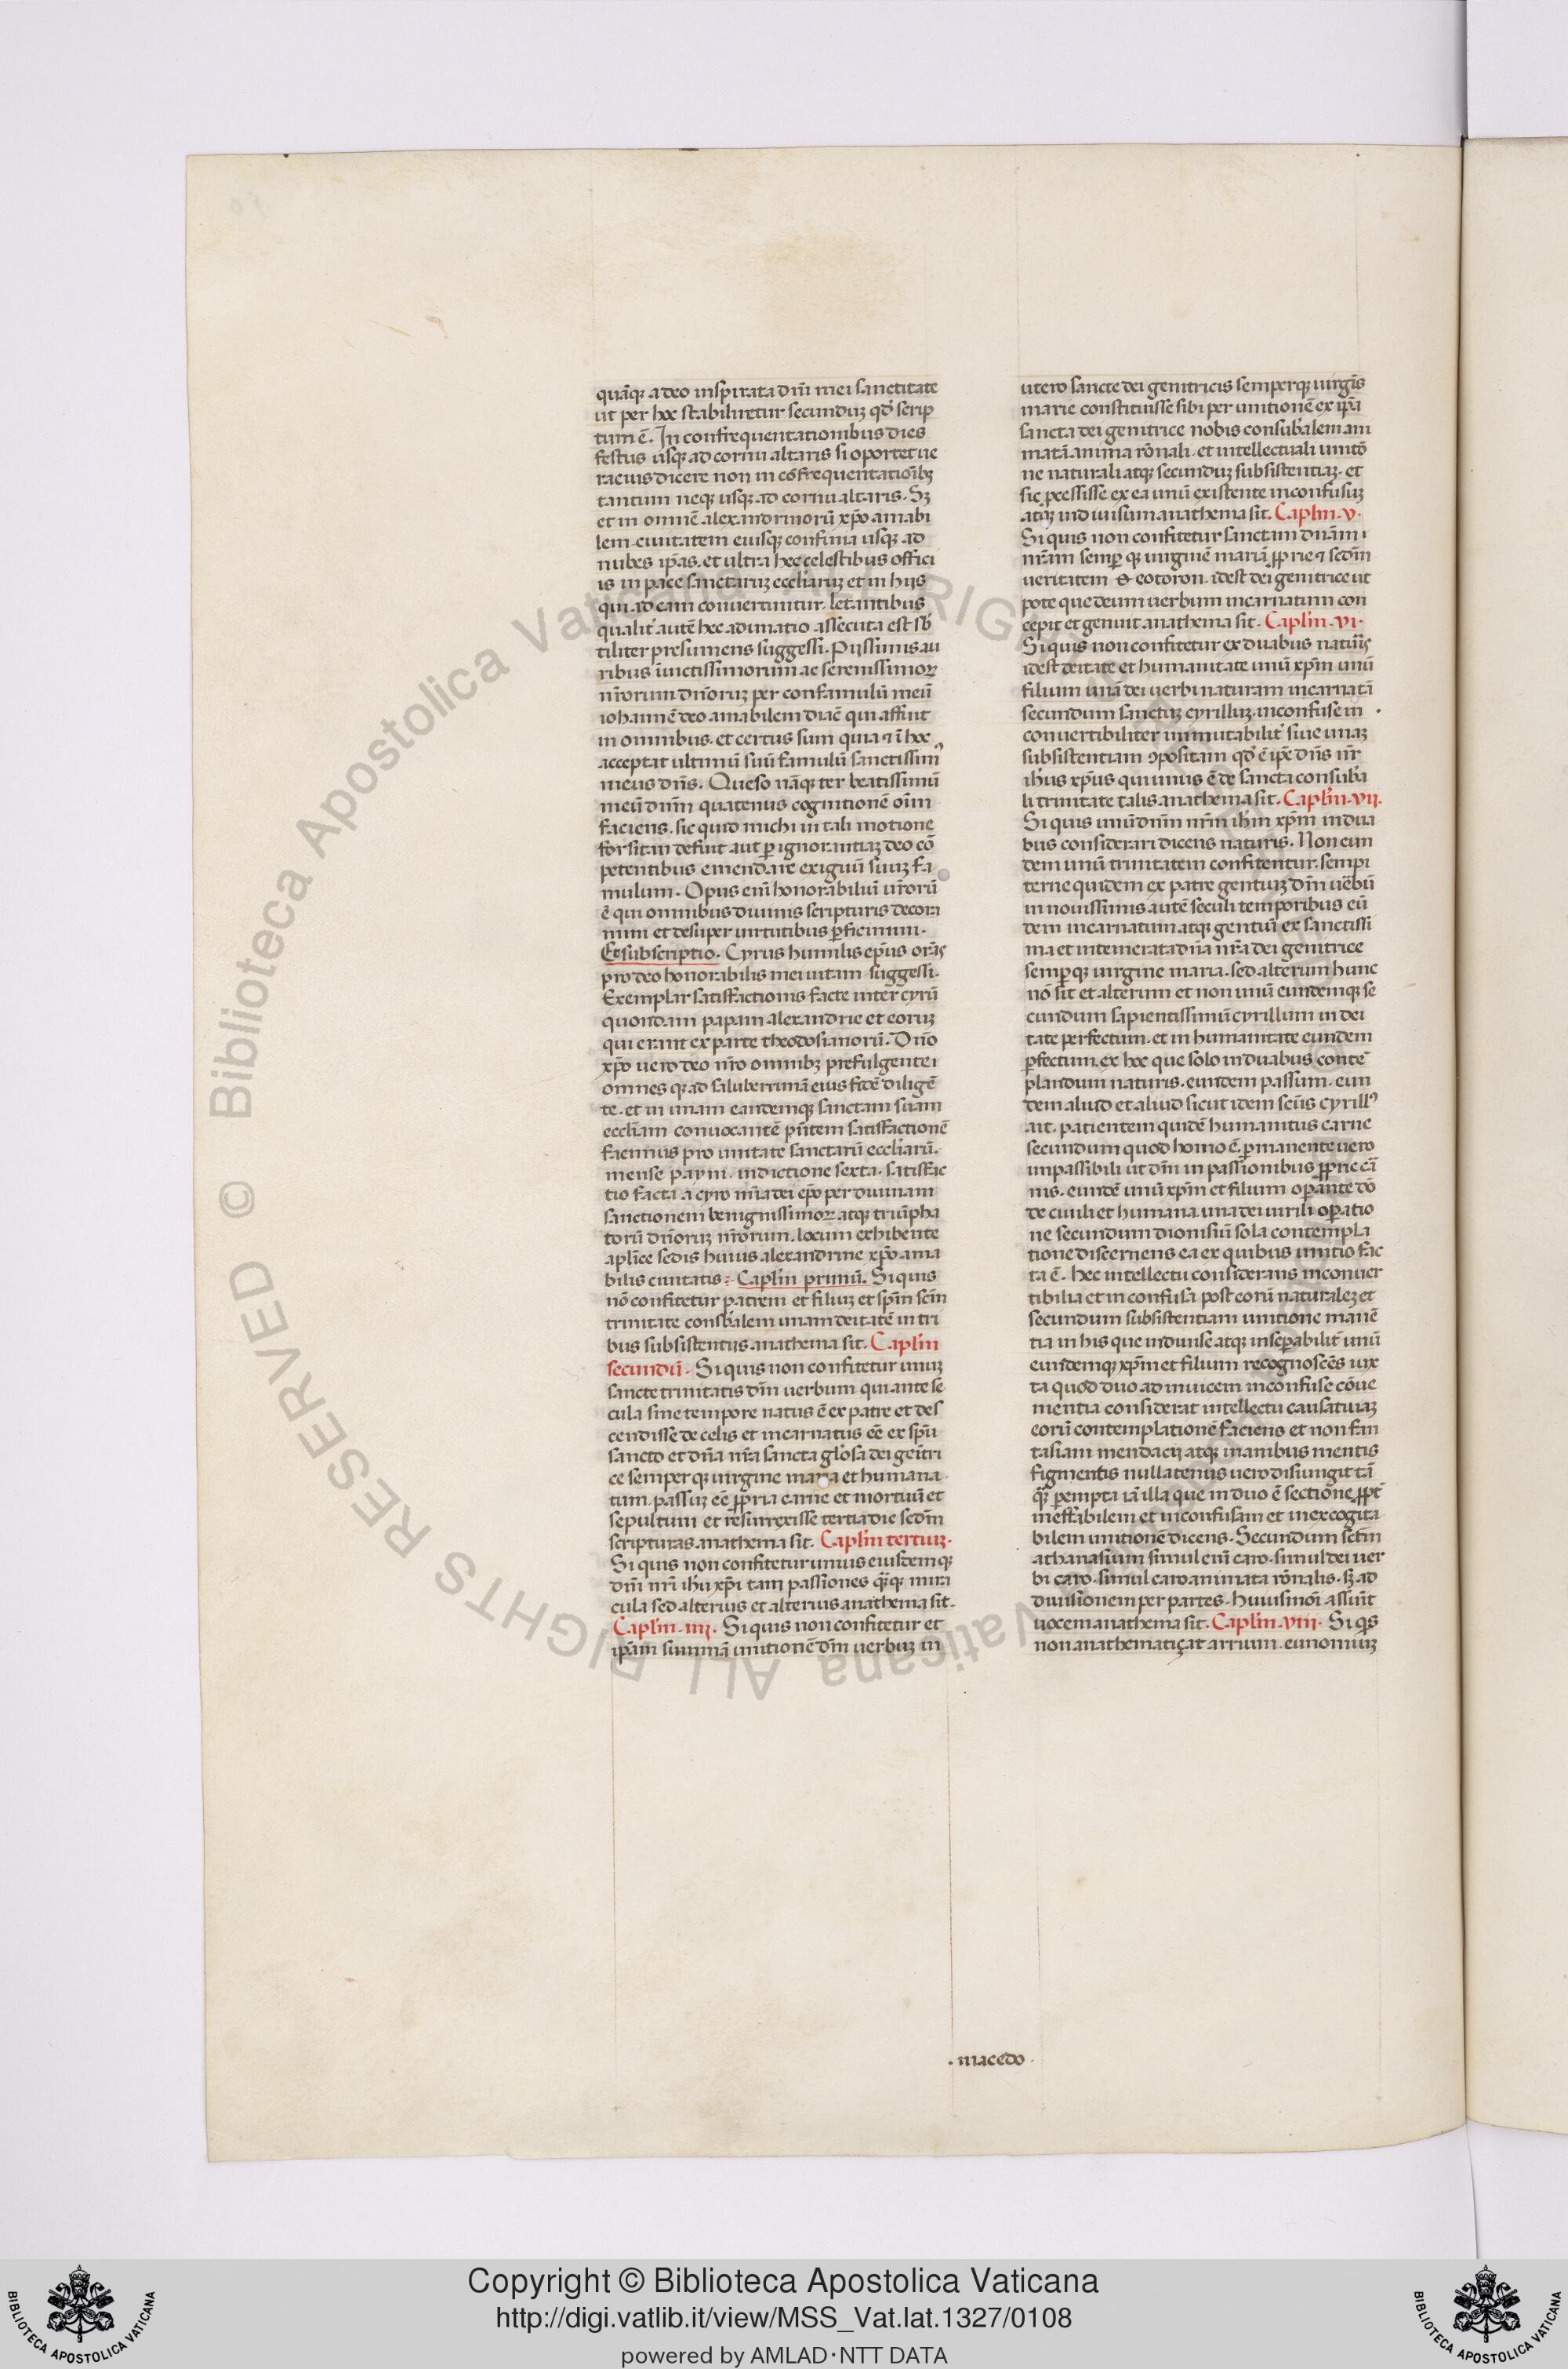 quãqꝫ a deo inspirata dñi mei sanctitate
ut per hoc stabiliretur secunduꝫ qđ scrip
tum ẽ. In confrequentationibus dies
festus usqꝫ ad cornu altaris si oportet ue
racius dicere non in cõfrequentatiõibꝫ
tantum neqꝫ usqꝫ ad cornu altaris. Sꝫ
et in omnẽ alexandrinorũ xp̃o amabi
lem ciuitatem eiusqꝫ confinia usqꝫ ad
nubes ip̃as. et ultra hec celestibus offici
is in pace sanctaruꝫ eccl̃iaruꝫ et in hijs
qui ad eam conuertuntur letantibus
qualit̃ autẽ hec adunatio assecuta est sb̃
tiliter presumens suggessi. Pijssimis au
ribus inuictissimorum ac serenissimoꝝ
nr̃orum dñoruꝫ per confamulũ meũ
iohannẽ deo amabilem diac̃ qui affuit
in omnibus. et certus sum quia ⁊ ĩ hoc
acceptat ultimũ suũ famulũ sanctissim⁹
meus dñs. Queso nãqꝫ ter beatissimũ
meũ dñm quatenus cognitionẽ oĩm
faciens. sic quid michi in tali motione
forsitan defuit aut ꝑ ignorantiaꝫ deo cõ
petentibus emendare exiguũ suuꝫ fa
mulum. Opus eni͂ honorabiliũ ur̃orũ
ẽ qui omnibus diuinis scripturis decora
mini et desuper uirtutibus ꝑficimini.
Et subscriptio. Cyrus humilis ep̃us orãs
pro deo honorabilis mei uitam suggessi.
Exemplar satisfactionis facte inter cyrũ
quondam papam alexandrie et eoruꝫ
qui erant ex parte theodosianorũ. Dño
xp̃o uero deo nr̃o omnibꝫ prefulgente ⁊
omnes qꝫ ad saluberrimã eius fidẽ diligẽ
te. et in unam eandemqꝫ sanctam suam
eccl̃iam conuocantẽ pñtem satisfactionẽ
facimus pro unitate sanctarũ eccl̃iarũ.
mense payni. indictione sexta. satisfac
tio facta a cyro mĩa dei ep̃o per diuinam
sanctionem benignissimoꝝ atqꝫ triũpha
torũ dñoruꝫ nr̃orum. locum exhibente
apl̃ice sedis huius alexandrine xp̃o ama
bilis ciuitatis:- Capl̃m primũ. Si quis
nõ confitetur patrem et filiuꝫ et sp̃m scm̃
trinitate consb̃alem unam deitatẽ in tri
bus subsistentijs anathema sit. Capl̃m
secundũ. Si quis non confitetur unuꝫ
sancte trinitatis dm̃ uerbum qui ante se
cula sine tempore natus ẽ ex patre et des
cendisse de celis et incarnatus eẽ ex sp̃u
sancto et dña nr̃a sancta gl̃osa dei geñtri
ce semper qꝫ uirgine maria et humana
tum. passuꝫ eẽ ꝓpria carne et mortuũ et
sepultum et resurrexisse tertia die scdm̃
scripturas. anathema sit. Capl̃m tertiuꝫ.
Si quis non confitetur unius eiusdemqꝫ
dñi nr̃i ih̃u xp̃i tam passiones q̃ꝫqꝫ mira
cula sed alterius et alterius anathema sit.
Capl̃m. iiij. Si quis non confitetur et
ip̃am summã unitionẽ dm̃ uerbuꝫ in
utero sancte dei genitricis semperqꝫ uirgĩs
marie constituisse sibi per unitionẽ ex ip̃a
sancta dei genitrice nobis consub̃alem ani
matã anima rõnali. et intellectuali unitõ
ne naturali atqꝫ secunduꝫ subsistentiaꝫ. et
sic ꝓcessisse ex ea unũ existente inconfusuꝫ
atqꝫ indiuisum anathema sit. Capl̃m. v.
Si quis non confitetur sanctam dñam ⁊
nr̃am semꝑ qꝫ uirginẽ mariã ꝓprie ⁊ scdm̃
ueritatem ϑeotoron. idest dei genitrice ut
pote que deum uerbum incarnatum con
cepit et genuit anathema sit. Capl̃m. vi.
Si quis non confitetur ex duabus natur̃is
idest deitate et humanitate unũ xp̃m unũ
filium unã dei uerbi naturam incarnatã
secundum sanctuꝫ cyrilluꝫ. inconfuse in
conuertibiliter inmutabilit̃ siue unaꝫ
subsistentiam ꝯpositam qđ ẽ ip̃e dñs nr̃
ih̃us xp̃us qui unus ẽ de sancta consub̃a
li trinitate talis. anathema sit. Capl̃m. vij.
Si quis unũ dñm nr̃m ih̃m xp̃m in dua
bus considerari dicens naturis. Non eun
dem unũ trinitatem confitentur. sempi
terne quidem ex patre genituꝫ dm̃ uẽbũ
in nouissimis autẽ seculi temporibus eũ
dem incarnatum atqꝫ genituũ ex sanctissi
ma et intemerata dña nr̃a dei genitrice
semperqꝫ uirgine maria. sed alterum hunc
nõ sit et alterum et non unũ eundemqꝫ se
cundum sapientissimũ cyrillum in dei
tate perfectum. et in humanitate eundem
ꝑfectum. ex hoc que solo in duabus conte
plandum naturis. eundem passum. eun
dem aliud et aliud sicut idem sc̃us cyrill⁹
ait. patientem quidẽ humanitus carne
secundum quod homo ẽ. ꝑmanente uero
impassibili ut dm̃ in passionibus ꝓprie cã
nis. eundẽ unũ xp̃m et filium oꝑante dõ
de ciuili et humana. una dei uirili oꝑatio
ne secundum dionisiũ sola contempla
tione discernens ea ex quibus unitio fac
ta ẽ. hec intellectu considerans inconuer
tibilia et inconfusa post eorũ naturaleꝫ et
secundum subsistentiam unitione manẽ
tia in his que indiuise atqꝫ inseꝑabilit̃ unũ
eundemqꝫ xp̃m et filium recognoscẽs iux
ta quod duo ad inuicem inconfuse cõue
nientia considerat intellectu causatiuaꝫ
eorũ contemplationẽ faciens et non fan
tasiam mendacij atqꝫ inanibus mentis
figmentis nullatenus uero disiungit tã
q̃ꝫ ꝑempta iã illa que in duo ẽ sectione ꝓpt̃
ineffabilem et inconfusam et inexcogita
bilem unitionẽ dicens. Secundum scm̃
athanasium simul eni͂ caro. simul dei uer
bi caro. simul caro animata rõnalis. sꝫ ad
diuisionem per partes. huiusmõi assũit
uocem anathema sit. Capl̃m. viij. Si qͥs
non anathematiçat arrium. eunomiuꝫ
. macedo .
Copyright © Biblioteca Apostolica Vaticana
http://digi.vatlib.it/view/MSS_Vat.lat.1327/0108
powered by AMLAD·NTT DATA